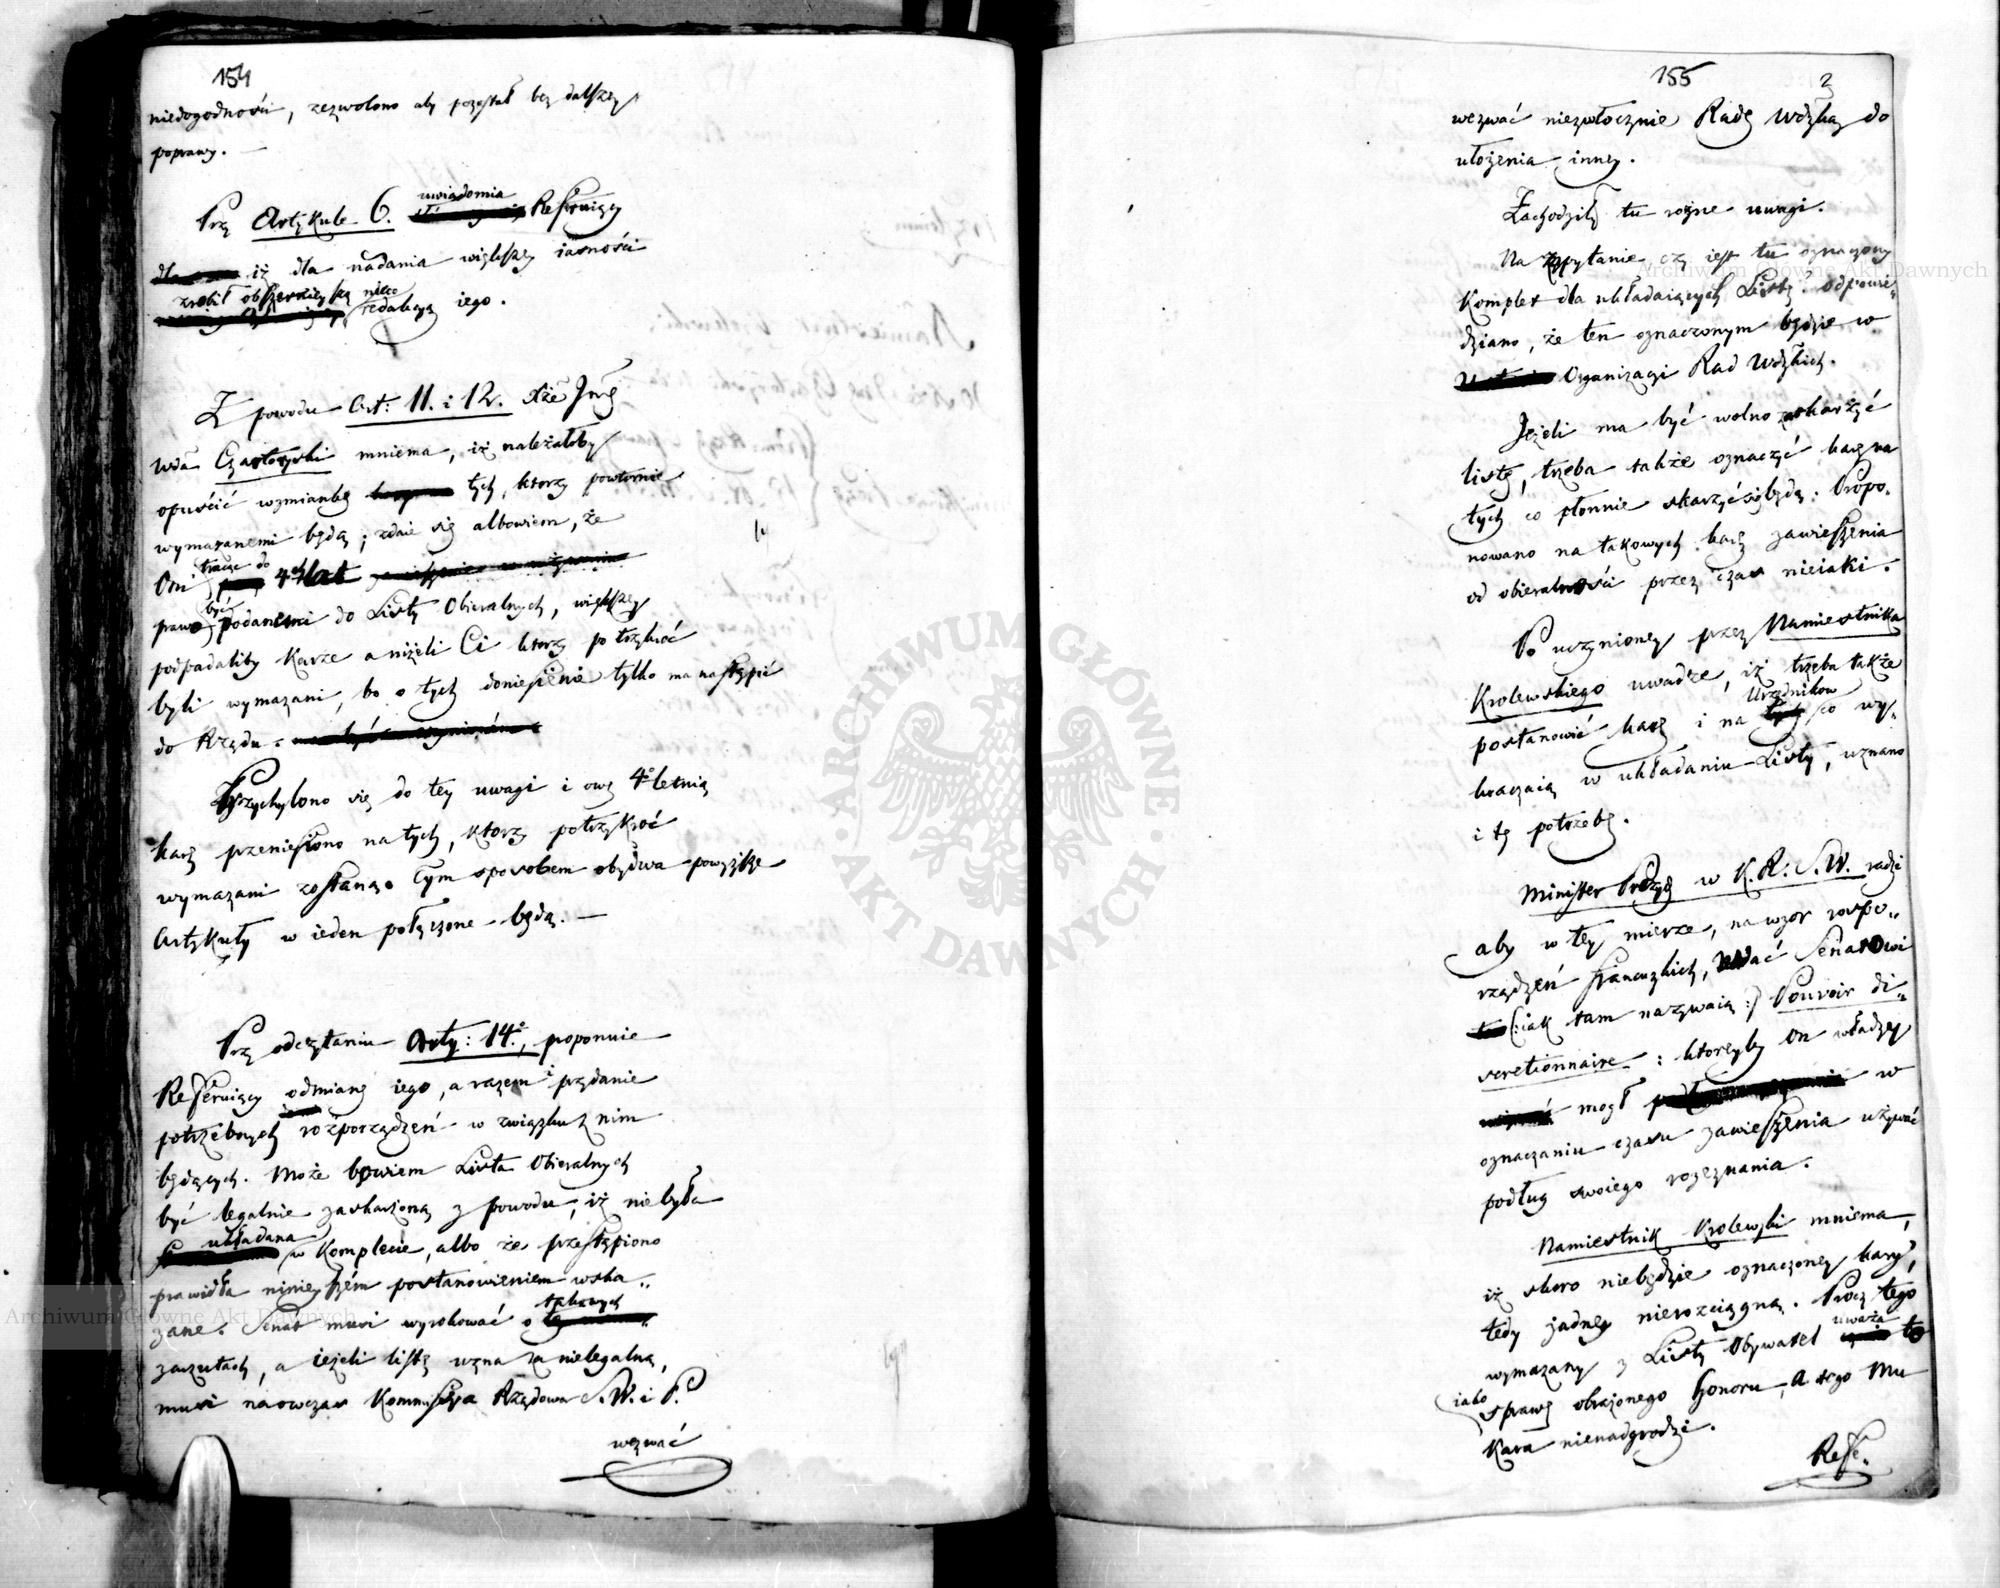 154
niedogodności, zezwolono aby pozostał bez dalszey
poprawy. —
Przy Artykule 6. uwiadomia Referuiący
iż dla nadania większey iasności
zrobił obszernieyszą nieco
redakcyą iego.
Z powodu Art: 11. i 12. Xże Jmć
Wda Czartoryski mniema, iż należałoby
opuścić wzmiankę tych, ktorzy powtornie
wymazanemi będą; zdaie się albowiem, że
Oni tracąc do 4ch lat
prawo być podanemi do Listy Obieralnych, większey
podpadaliby Karze aniżeli Ci ktorzy po trzykroć
byli wymazani, bo o tych doniesienie tylko ma nastąpić
do Rządu.
Przychylono się do tey uwagi i owę 4o letnią
karę przeniesiono na tych, ktorzy potrzykroć
wymazani zostaną. Tym sposobem obydwa powyższe
Artykuły w ieden połączone będą. —
Przy odczytaniu Arty: 14o., proponuie
Referuiący odmianę iego, a razem i przydanie
potrzebnych rozporządzeń w związku z nim
będących. Może bowiem Lista Obieralnych
być legalnie zaskarżoną z powodu, iż nie była
układana w Komplecie, albo że przestąpiono
prawidła ninieyszém postanowieniem wska„
zane. Senat musi wyrokować o takowych
zarzutach, a ieżeli listę uzna za nielegalną,
musi naówczas Kommissya Rządowa S. W. i P.
wezwać
155
2
wezwać niezwłocznie Radę Wdzką do
ułożenia inney.
Zachodziły tu rożne uwagi.
Na zapytanie czy iest tu oznaczony
Komplet dla układaiących Listy. odpowie„
dziano, że ten oznaczonym będzie w
Organizacyi Rad Wdzkich.
Jeżeli ma być wolno zaskarżyć
listę, trzeba także oznaczyć karę na
tych co płonnie skarżyć się będą: Propo„
nowano na takowych karę zawieszenia
od obieralności przez czas nieiaki.
Po uczynioney przez Namiestnika
Krolewskiego uwadze, iż trzeba także
postanowić karę i na Urzędnikow co wy„
kraczaią w układaniu Listy, uznano
i tę potrzebę.
Minister Prezyd: w K. R: S. W. radzi
aby w tey mierze, na wzor rozpo„
rządzeń francuzkich, nadać Senatowi
(:iak tam nazywaią:) Pouvoir di„
scretionnaire: ktoreyby On władzy
mogł w
oznaczaniu czasu zawieszenia używać
podług swoiego rozeznania.
Namiestnik Krolewski mniema,
iż skoro niebędzie oznaczoney kary,
tedy żadney nierozciągną. Procz tego
wymazany z Listy Obywatel uważa to
iako sprawę obrażonego honoru, a tego Mu
Kara nienadgrodzi.
Refe„